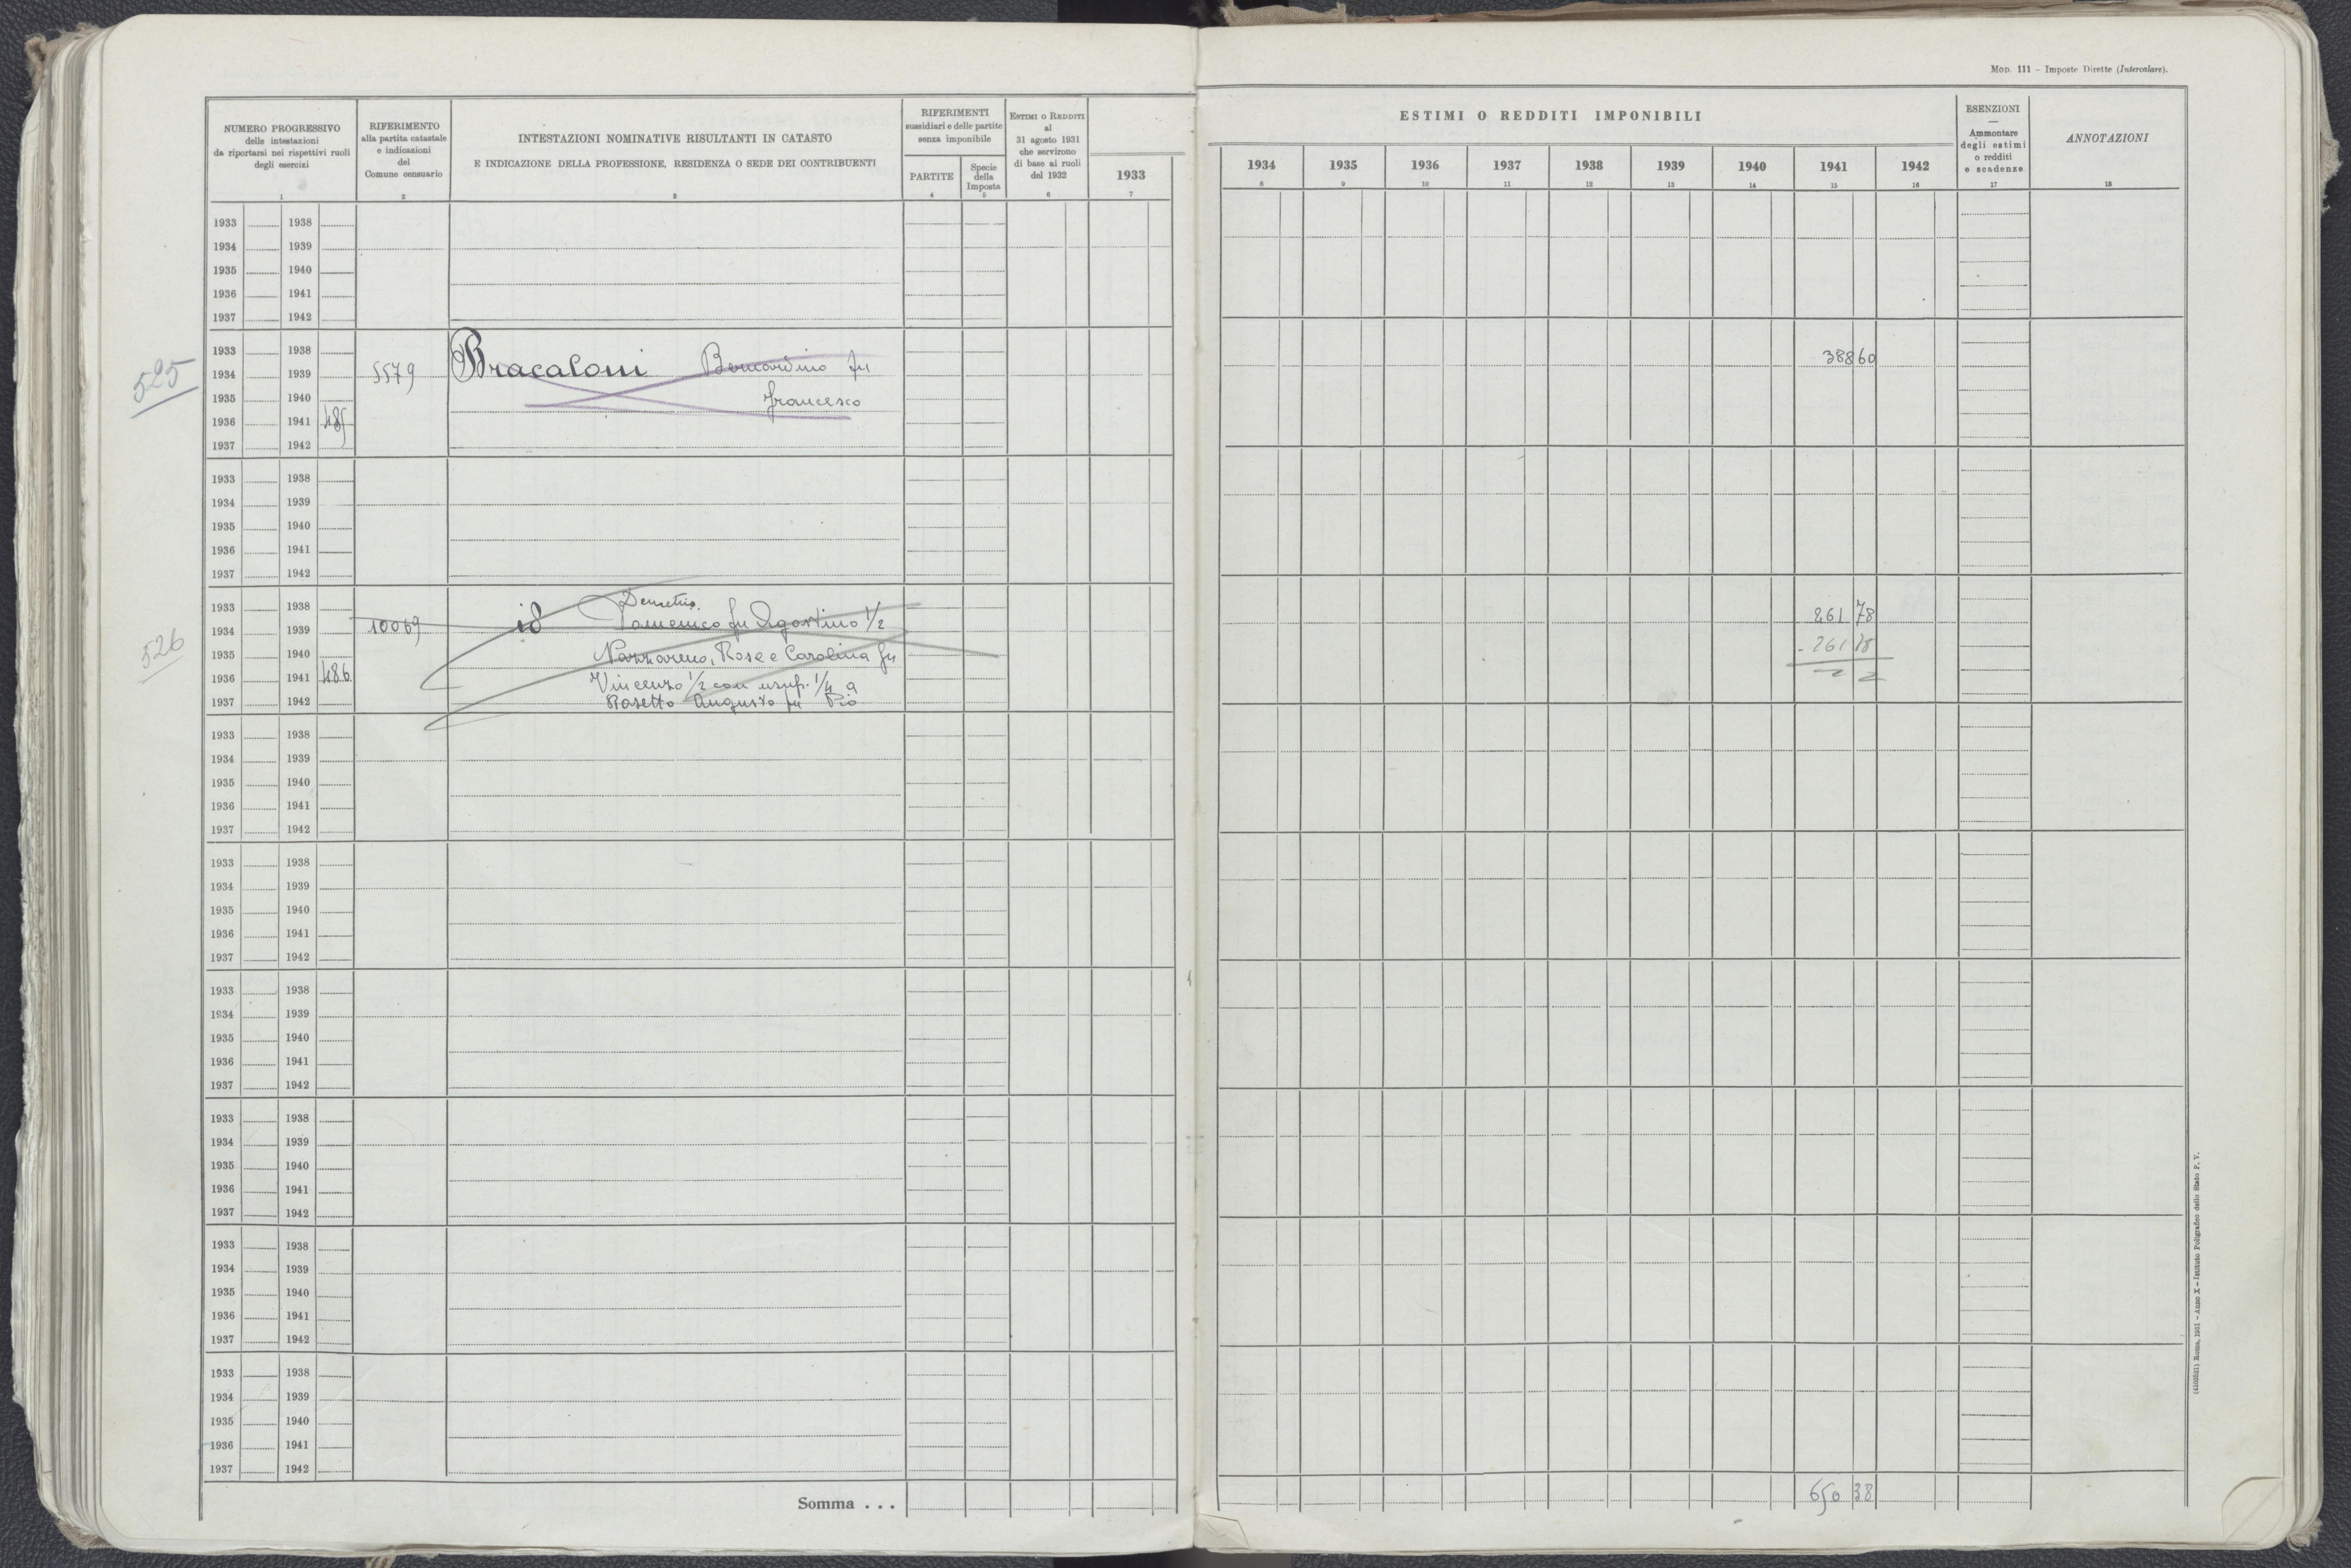 MOD. 111 – Imposte Dirette (Intercalare).
NUMERO PROGRESSIVO
delle intestazioni
da riportarsi nei rispettivi ruoli
degli esercizi
1
RIFERIMENTO
alla partita catastale
e indicazioni
del
Comune censuario
2
INTESTAZIONI NOMINATIVE RISULTANTI IN CATASTO
E INDICAZIONE DELLA PROFESSIONE, RESIDENZA O SEDE DEI CONTRIBUENTI
3
RIFERIMENTI
sussidiari e delle partite
senza imponibile
PARTITE
4
Specie
della
Imposta
5
ESTIMI O REDDITI
al
31 agosto 1931
che servirono
di base ai ruoli
del 1932
6
ESTIMI O REDDITI IMPONIBILI
1933 1934 1935 1936 1937 1938 1939 1940 1941 1942
7 8 9 10 11 12 13 14 15 16
ESENZIONI
—
Ammontare
degli estimi
o redditi
e scadenze
17
ANNOTAZIONI
18
1933 1938
1934 1939
1935 1940
1936 1941
1937 1942
525
1933 1938
1934 1939 5579 Bracaloni Bernardino fu 388 60
1935 1940 Francesco
1936 1941 485
1937 1942
1933 1938
1934 1939
1935 1940
1936 1941
1937 1942
526
1933 1938 Demetrio
1934 1939 10069 id Domenico fu Agostino 1/2 261 78
1935 1940 Nazzareno, Rosa e Carolina fu - 261 78
1936 1941 486 Vincenzo 1/2 con usuf. 1/4 a
1937 1942 Rosetto Augusto fu Pio
1933 1938
1934 1939
1935 1940
1936 1941
1937 1942
1933 1938
1934 1939
1935 1940
1936 1941
1937 1942
1933 1938
1934 1939
1935 1940
1936 1941
1937 1942
1933 1938
1934 1939
1935 1940
1936 1941
1937 1942
1933 1938
1934 1939
1935 1940
1936 1941
1937 1942
1933 1938
1934 1939
1935 1940
1936 1941
1937 1942
Somma . . . 650 38
(4103521) Roma, 1931 – Anno X – Istituto Poligrafico dello Stato P. V.